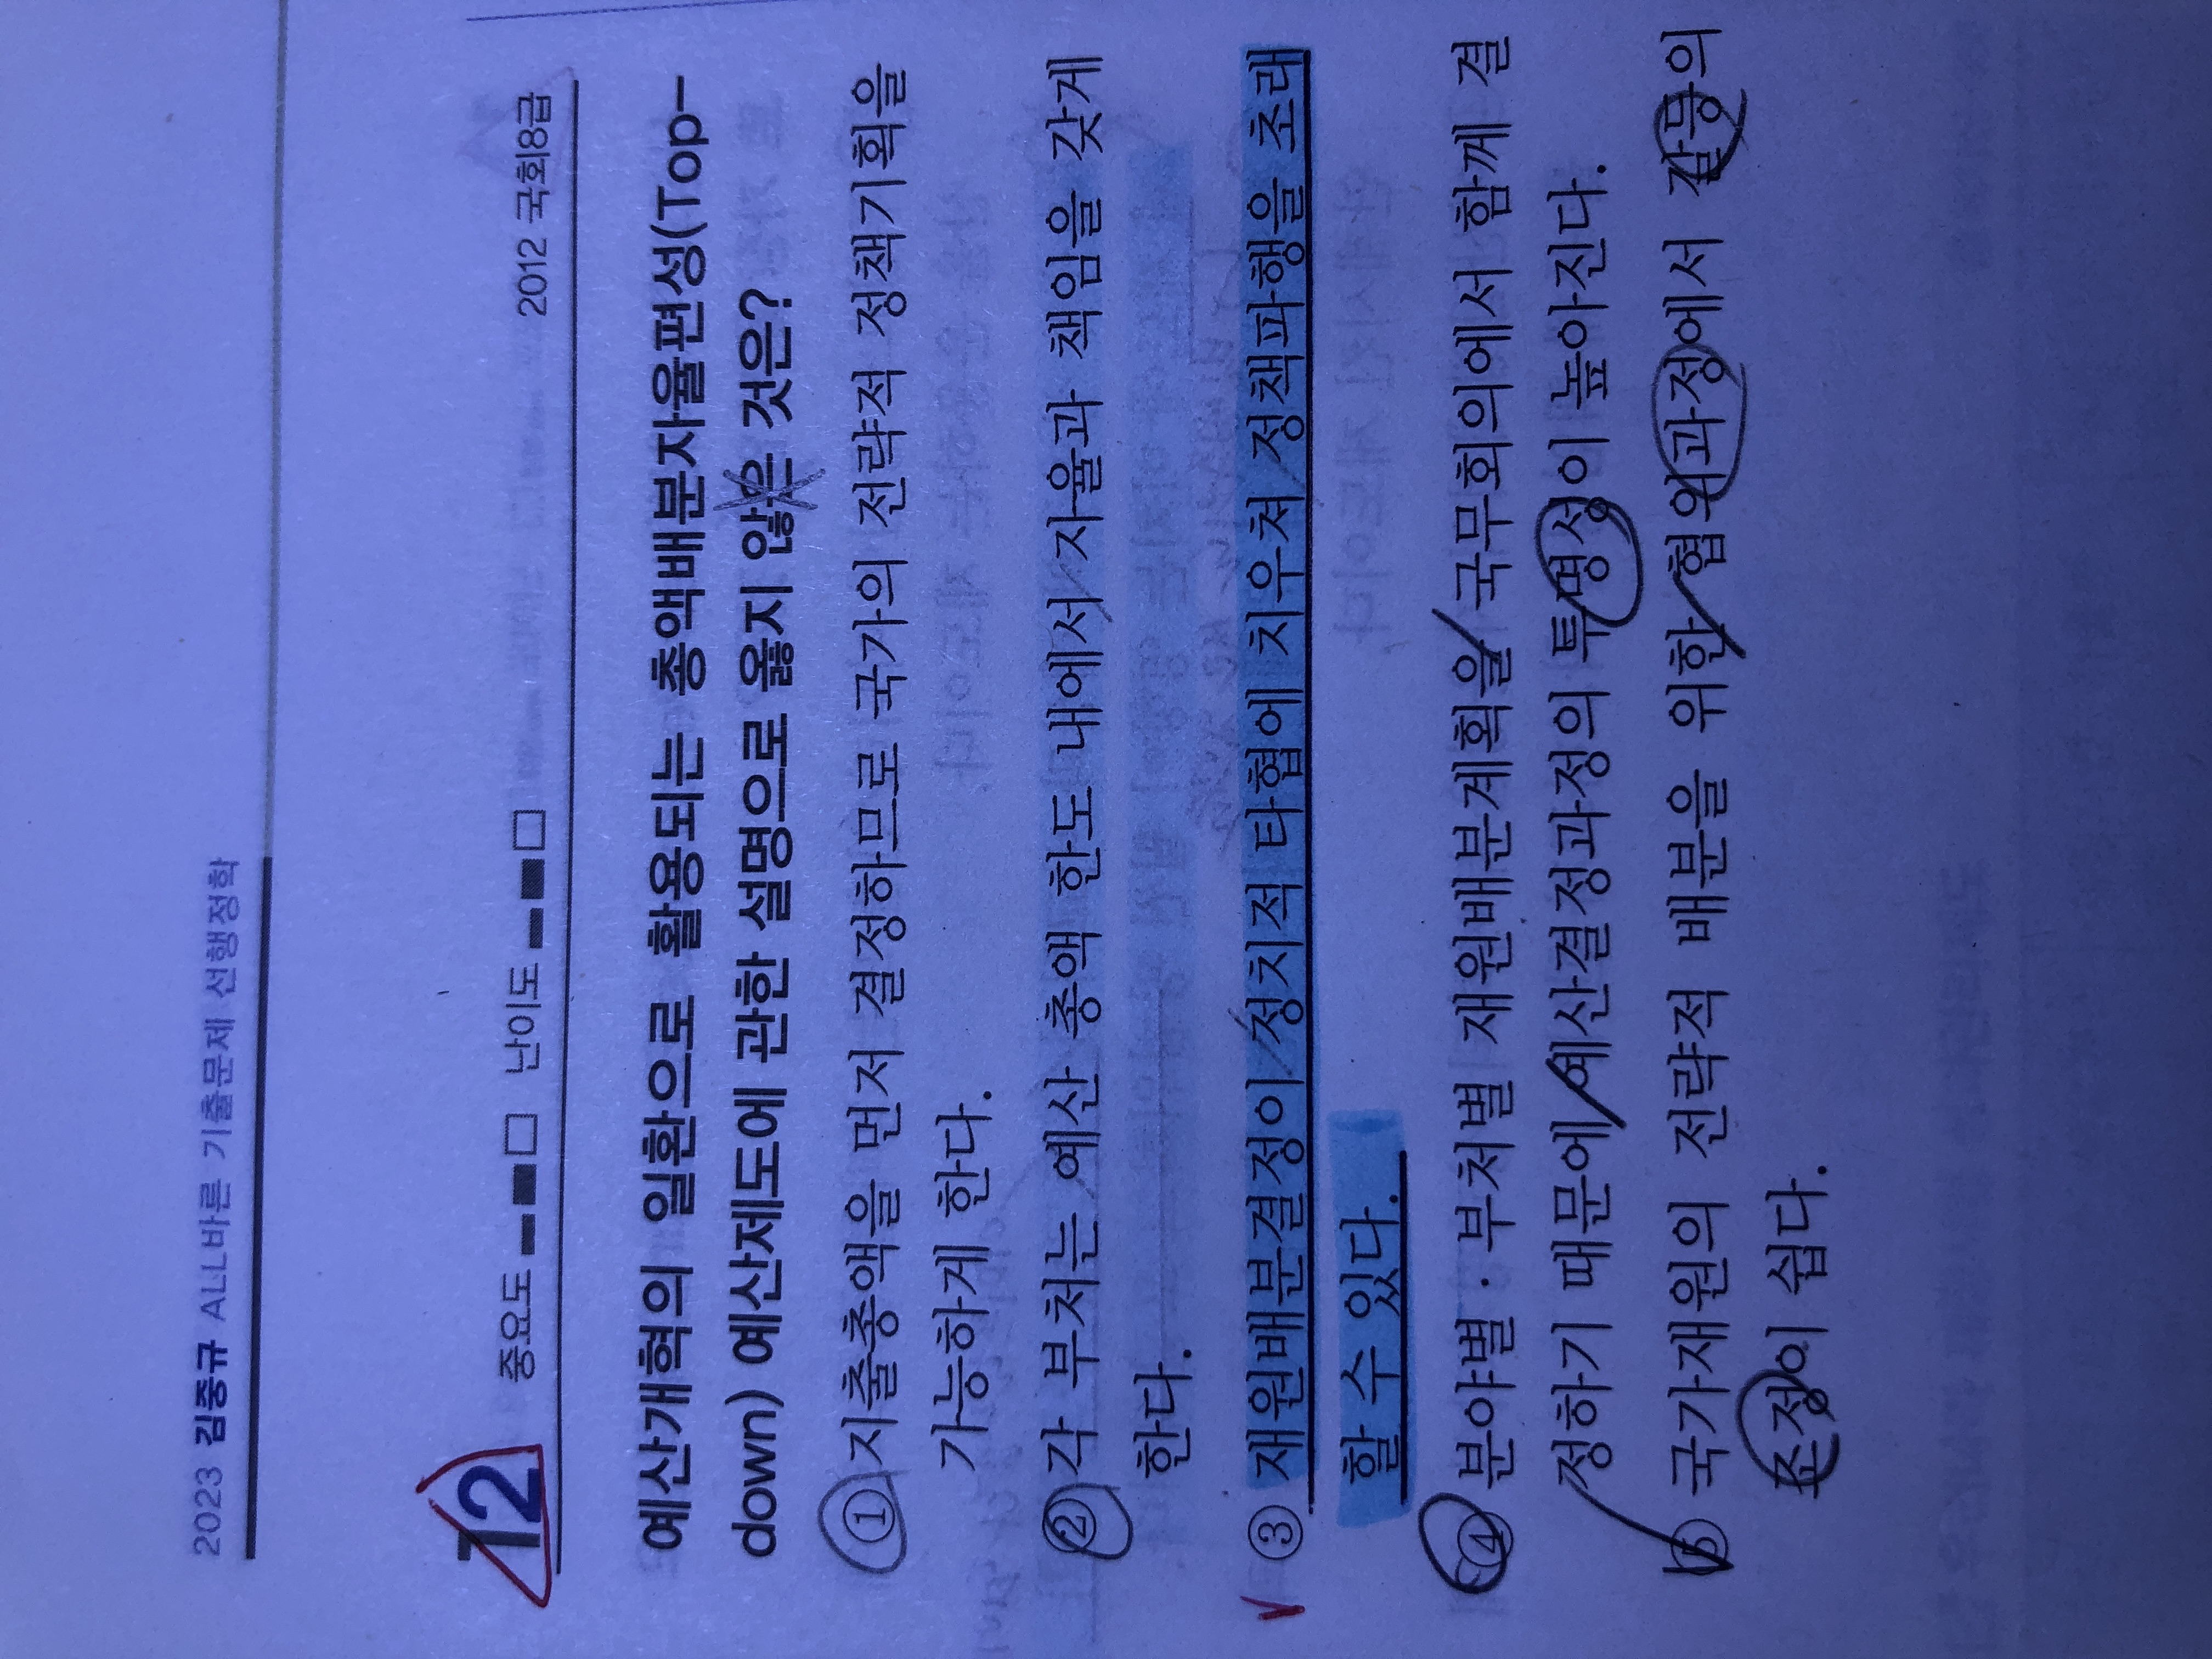 2023 김중규 ALL바른 기출문제 선행정학
12 중요도 난이도 2012 국회8급
예산개혁의 일환으로 활용되는 총액배분자율편성(Top-
down) 예산제도에 관한 설명으로 옳지 않은 것은?
① 지출총액을 먼저 결정하므로 국가의 전략적 정책기획을
가능하게 한다.
② 각 부처는 예산 총액 한도 내에서 자율과 책임을 갖게
한다.
③ 재원배분결정이 정치적 타협에 치우쳐 정책파행을 초래
할 수 있다.
④ 분야별·부처별 재원배분계획을 국무회의에서 함께 결
정하기 때문에 예산결정과정의 투명성이 높아진다.
⑤ 국가재원의 전략적 배분을 위한 협의과정에서 갈등의
조정이 쉽다.